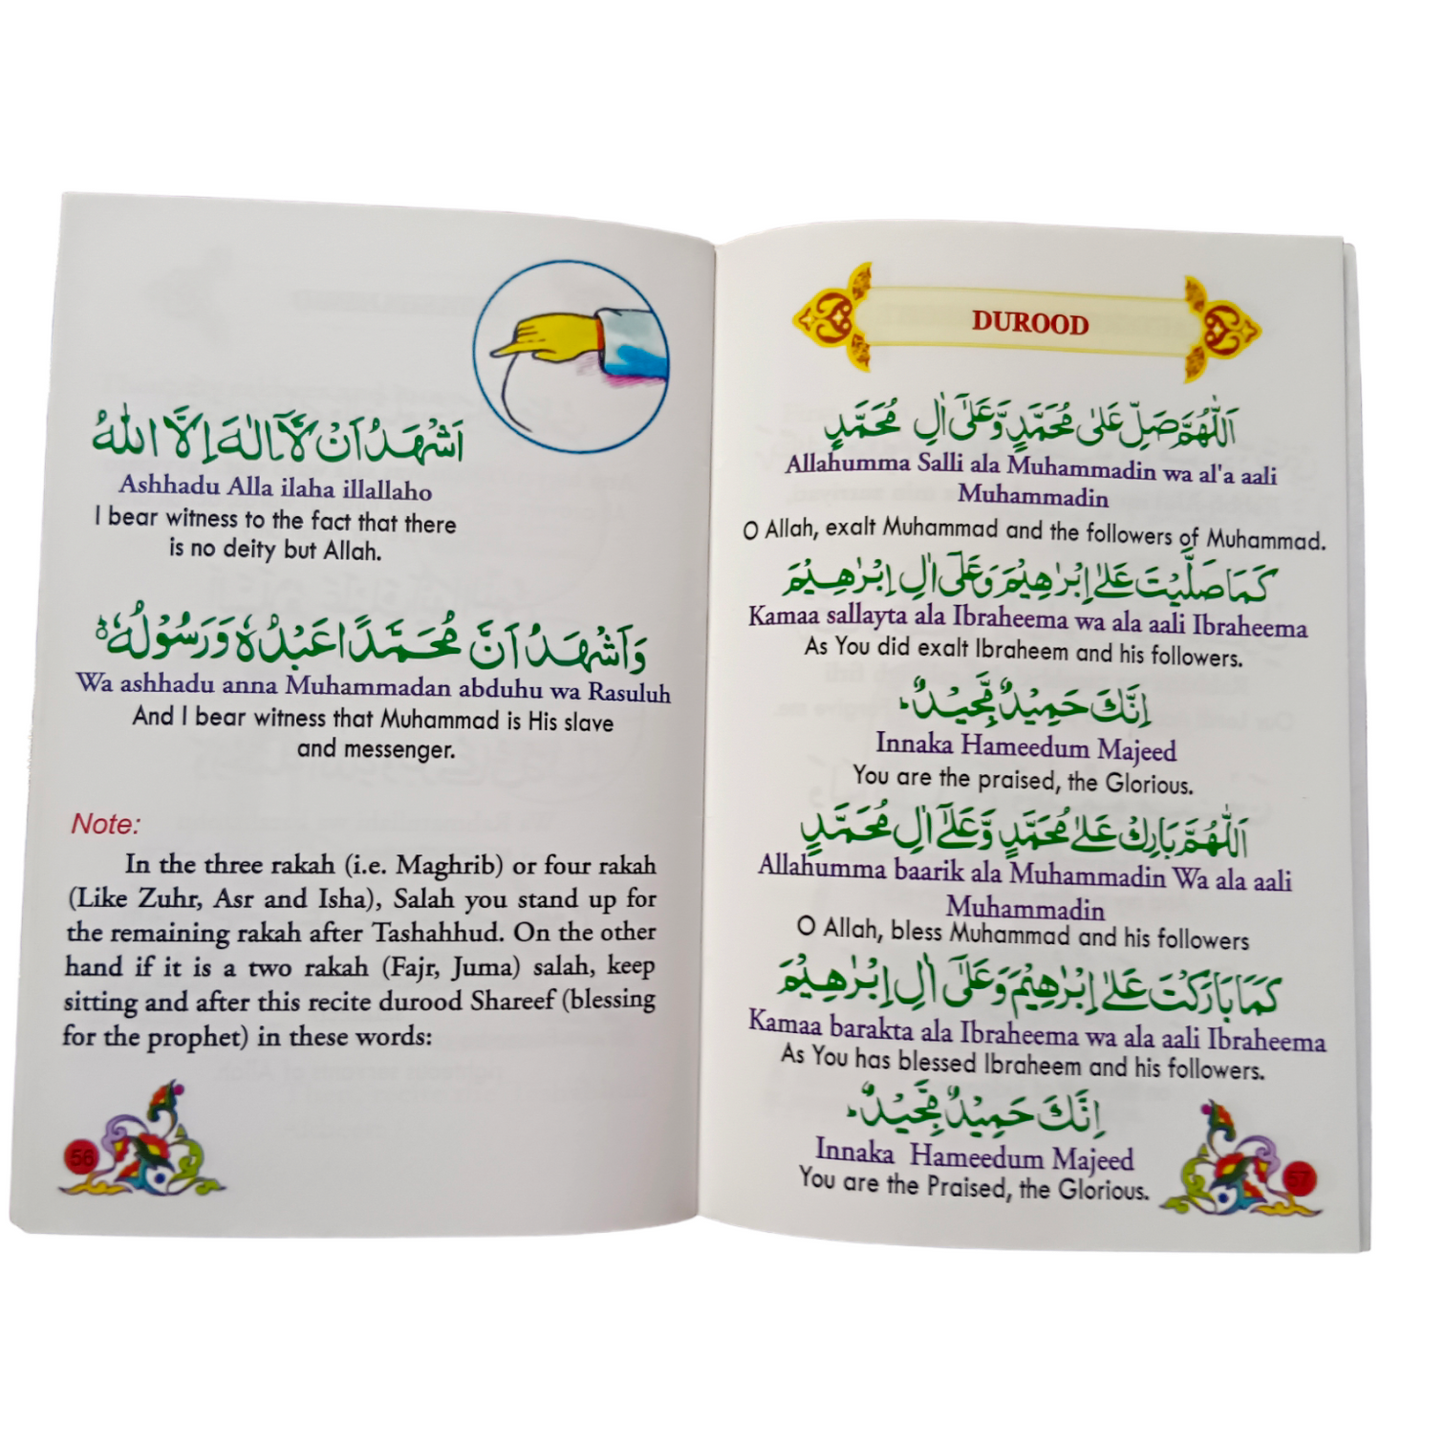 اَشْهَدُ اَنْ لَّآ اِلٰهَ اِلَّا اللهُ
Ashhadu Alla ilaha illallaho
I bear witness to the fact that there
is no deity but Allah.
وَاَشْهَدُ اَنَّ مُحَمَّدًا عَبْدُهٗ وَرَسُوْلُهٗ ؕ
Wa ashhadu anna Muhammadan abduhu wa Rasuluh
And I bear witness that Muhammad is His slave
and messenger.
Note:
In the three rakah (i.e. Maghrib) or four rakah
(Like Zuhr, Asr and Isha), Salah you stand up for
the remaining rakah after Tashahhud. On the other
hand if it is a two rakah (Fajr, Juma) salah, keep
sitting and after this recite durood Shareef (blessing
for the prophet) in these words:
56
DUROOD
اَللّٰهُمَّ صَلِّ عَلٰى مُحَمَّدٍ وَّعَلٰٓى اٰلِ مُحَمَّدٍ
Allahumma Salli ala Muhammadin wa al'a aali
Muhammadin
O Allah, exalt Muhammad and the followers of Muhammad.
كَمَا صَلَّيْتَ عَلٰٓى اِبْرٰهِيْمَ وَعَلٰٓى اٰلِ اِبْرٰهِيْمَ
Kamaa sallayta ala Ibraheema wa ala aali Ibraheema
As You did exalt Ibraheem and his followers.
اِنَّكَ حَمِيْدٌ مَّجِيْدٌ
Innaka Hameedum Majeed
You are the praised, the Glorious.
اَللّٰهُمَّ بَارِكْ عَلٰى مُحَمَّدٍ وَّعَلٰٓى اٰلِ مُحَمَّدٍ
Allahumma baarik ala Muhammadin Wa ala aali
Muhammadin
O Allah, bless Muhammad and his followers
كَمَا بَارَكْتَ عَلٰٓى اِبْرٰهِيْمَ وَعَلٰٓى اٰلِ اِبْرٰهِيْمَ
Kamaa barakta ala Ibraheema wa ala aali Ibraheema
As You has blessed Ibraheem and his followers.
اِنَّكَ حَمِيْدٌ مَّجِيْدٌ
Innaka Hameedum Majeed
You are the Praised, the Glorious.
57